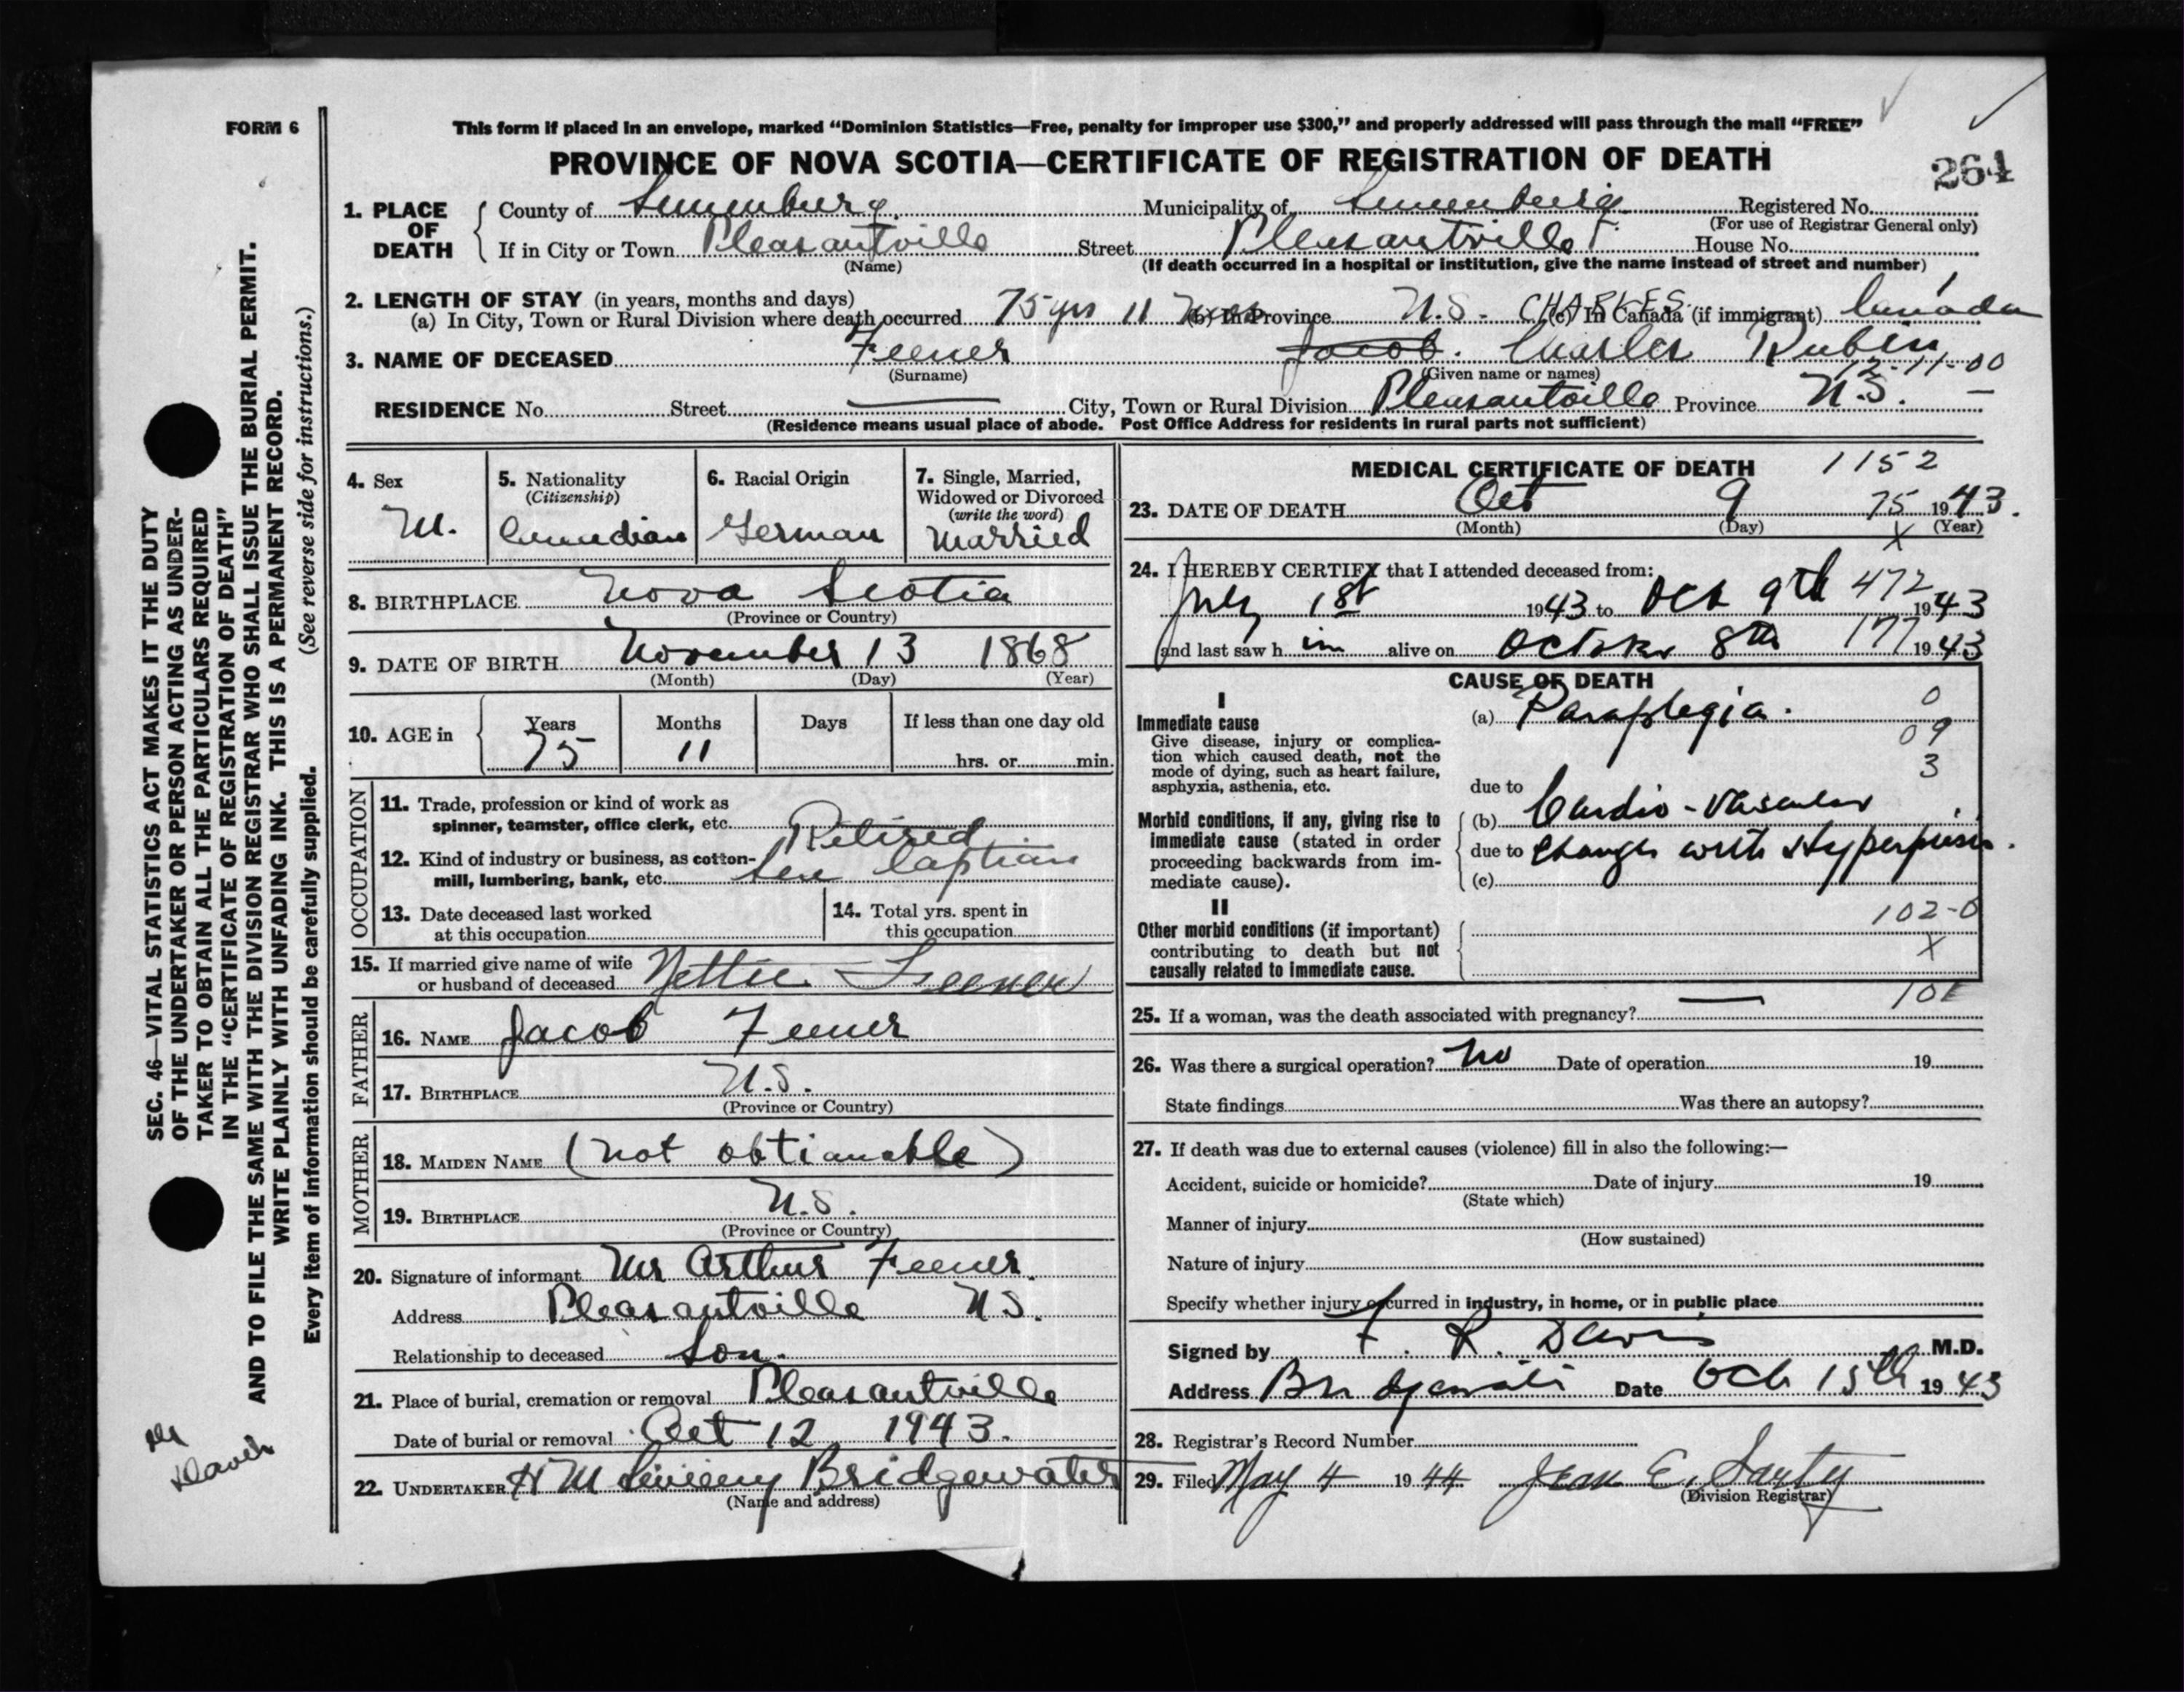 FORM 6
This form if placed in an envelope, marked “Dominion Statistics—Free, penalty for improper use $300,” and properly addressed will pass through the mail “FREE”
PROVINCE OF NOVA SCOTIA—CERTIFICATE OF REGISTRATION OF DEATH
264
1. PLACE OF DEATH
County of Lunenburg. Municipality of Lunenburg Registered No.
(For use of Registrar General only)
If in City or Town Pleasantville Street Pleasantville House No.
(Name) (If death occurred in a hospital or institution, give the name instead of street and number)
2. LENGTH OF STAY (in years, months and days)
(a) In City, Town or Rural Division where death occurred 75 yrs 11 (b) In Province N.S. CHARLES (c) In Canada (if immigrant) Canada
3. NAME OF DECEASED Feener Jacob. Charles Rubin
(Surname) (Given name or names) 12-11-00
RESIDENCE No. Street — City, Town or Rural Division Pleasantville Province N.S. —
(Residence means usual place of abode. Post Office Address for residents in rural parts not sufficient)
4. Sex
M.
5. Nationality
(Citizenship)
Canadian
6. Racial Origin
German
7. Single, Married,
Widowed or Divorced
(write the word)
Married
8. BIRTHPLACE Nova Scotia
(Province or Country)
9. DATE OF BIRTH November 13 1868
(Month) (Day) (Year)
10. AGE in
Years Months Days If less than one day old
75 11 hrs. or min.
OCCUPATION
11. Trade, profession or kind of work as
spinner, teamster, office clerk, etc. Retired
12. Kind of industry or business, as cotton-
mill, lumbering, bank, etc. Sea Captian
13. Date deceased last worked
at this occupation
14. Total yrs. spent in
this occupation
15. If married give name of wife
or husband of deceased Nettie Feener
FATHER
16. NAME Jacob Feener
17. BIRTHPLACE N.S.
(Province or Country)
MOTHER
18. MAIDEN NAME (not obtianable)
19. BIRTHPLACE N.S.
(Province or Country)
20. Signature of informant Mr Arthur Feener.
Address Pleasantville N.S.
Relationship to deceased Son.
21. Place of burial, cremation or removal Pleasantville
Date of burial or removal Oct 12 1943.
22. UNDERTAKER H M Bridgewater
(Name and address)
MEDICAL CERTIFICATE OF DEATH 1152
23. DATE OF DEATH Oct 9 75 1943.
(Month) (Day) X (Year)
24. I HEREBY CERTIFY that I attended deceased from:
July 1st 1943 to Oct 9th 472 1943
and last saw h im alive on October 8th 177 1943
CAUSE OF DEATH
I
Immediate cause
Give disease, injury or complica-
tion which caused death, not the
mode of dying, such as heart failure,
asphyxia, asthenia, etc.
(a) Paraplegia. 0
09
3
due to
Morbid conditions, if any, giving rise to
immediate cause (stated in order
proceeding backwards from im-
mediate cause).
(b) Cardio-Vascular
due to changes with
(c)
II
Other morbid conditions (if important)
contributing to death but not
causally related to immediate cause.
102-0
X
25. If a woman, was the death associated with pregnancy? —
26. Was there a surgical operation? No Date of operation 19
State findings Was there an autopsy?
27. If death was due to external causes (violence) fill in also the following:—
Accident, suicide or homicide? Date of injury 19
(State which)
Manner of injury
(How sustained)
Nature of injury
Specify whether injury occurred in industry, in home, or in public place
Signed by F. R. Davis M.D.
Address Bridgewater Date Oct 15th 1943
28. Registrar's Record Number
29. Filed May 4 1944 Jean E.
(Division Registrar)
SEC. 46—VITAL STATISTICS ACT MAKES IT THE DUTY
OF THE UNDERTAKER OR PERSON ACTING AS UNDER-
TAKER TO OBTAIN ALL THE PARTICULARS REQUIRED
IN THE “CERTIFICATE OF REGISTRATION OF DEATH”
AND TO FILE THE SAME WITH THE DIVISION REGISTRAR WHO SHALL ISSUE THE BURIAL PERMIT.
WRITE PLAINLY WITH UNFADING INK. THIS IS A PERMANENT RECORD.
Every item of information should be carefully supplied. (See reverse side for instructions.)
Dr
Davis